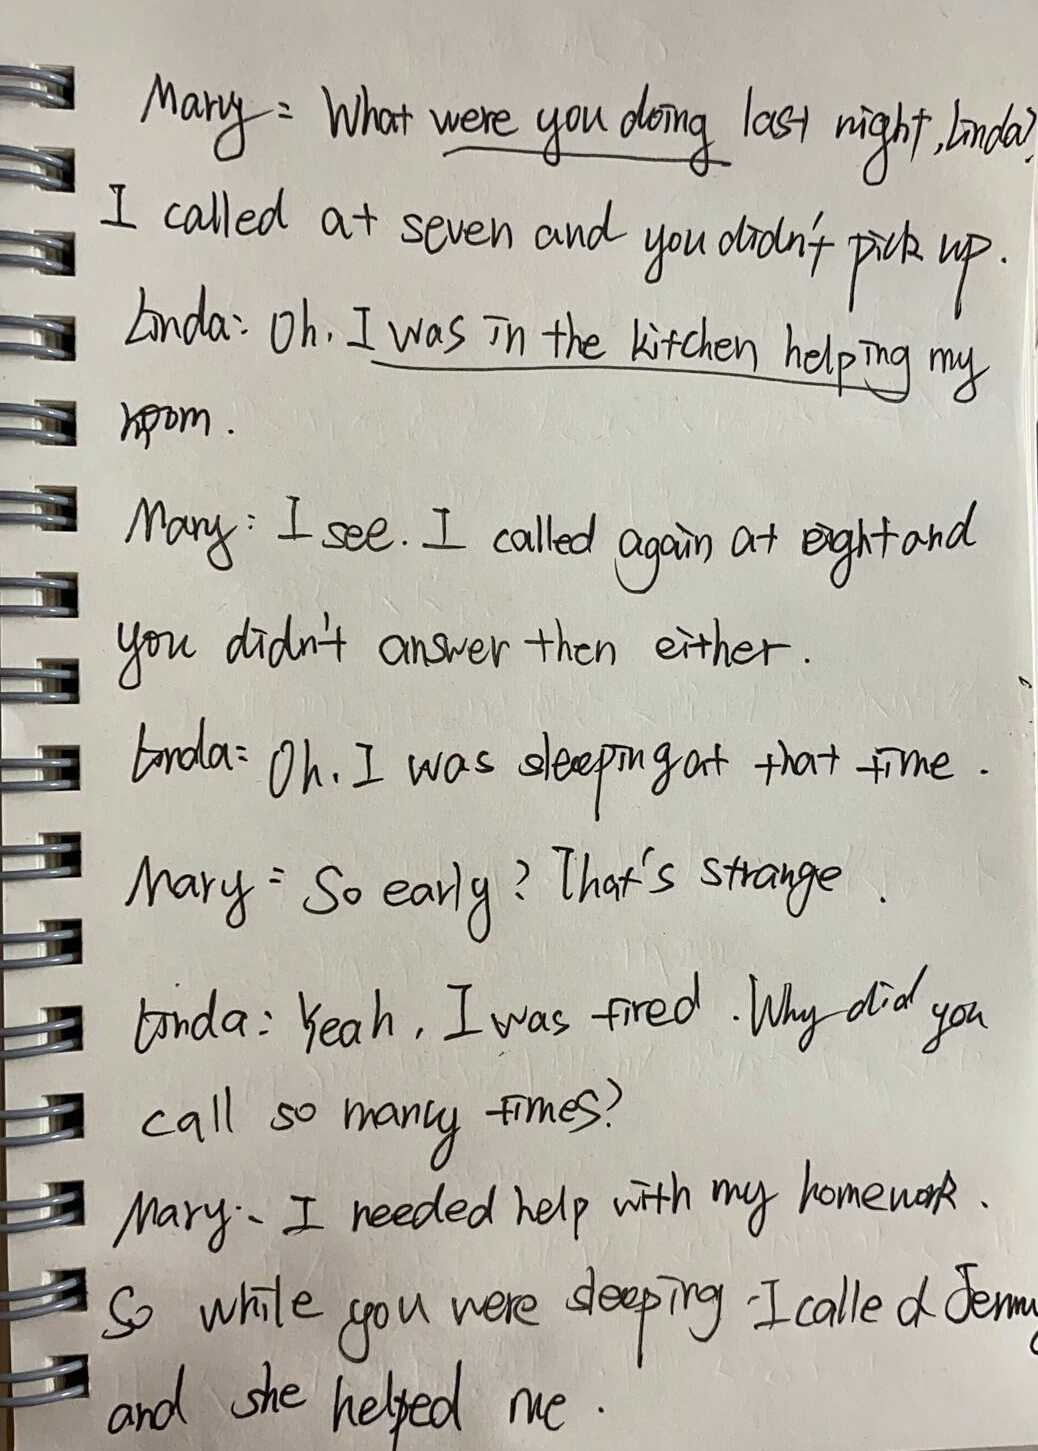 Mary: What were you doing last night, Linda?
I called at seven and you didn't pick up.
Linda: Oh, I was in the kitchen helping my
mom.
Mary: I see. I called again at eight and
you didn't answer then either.
Linda: Oh, I was sleeping at that time.
Mary: So early? That's strange.
Linda: Yeah, I was tired. Why did you
call so many times?
Mary: I needed help with my homework.
So while you were sleeping. I called Jenny
and she helped me.